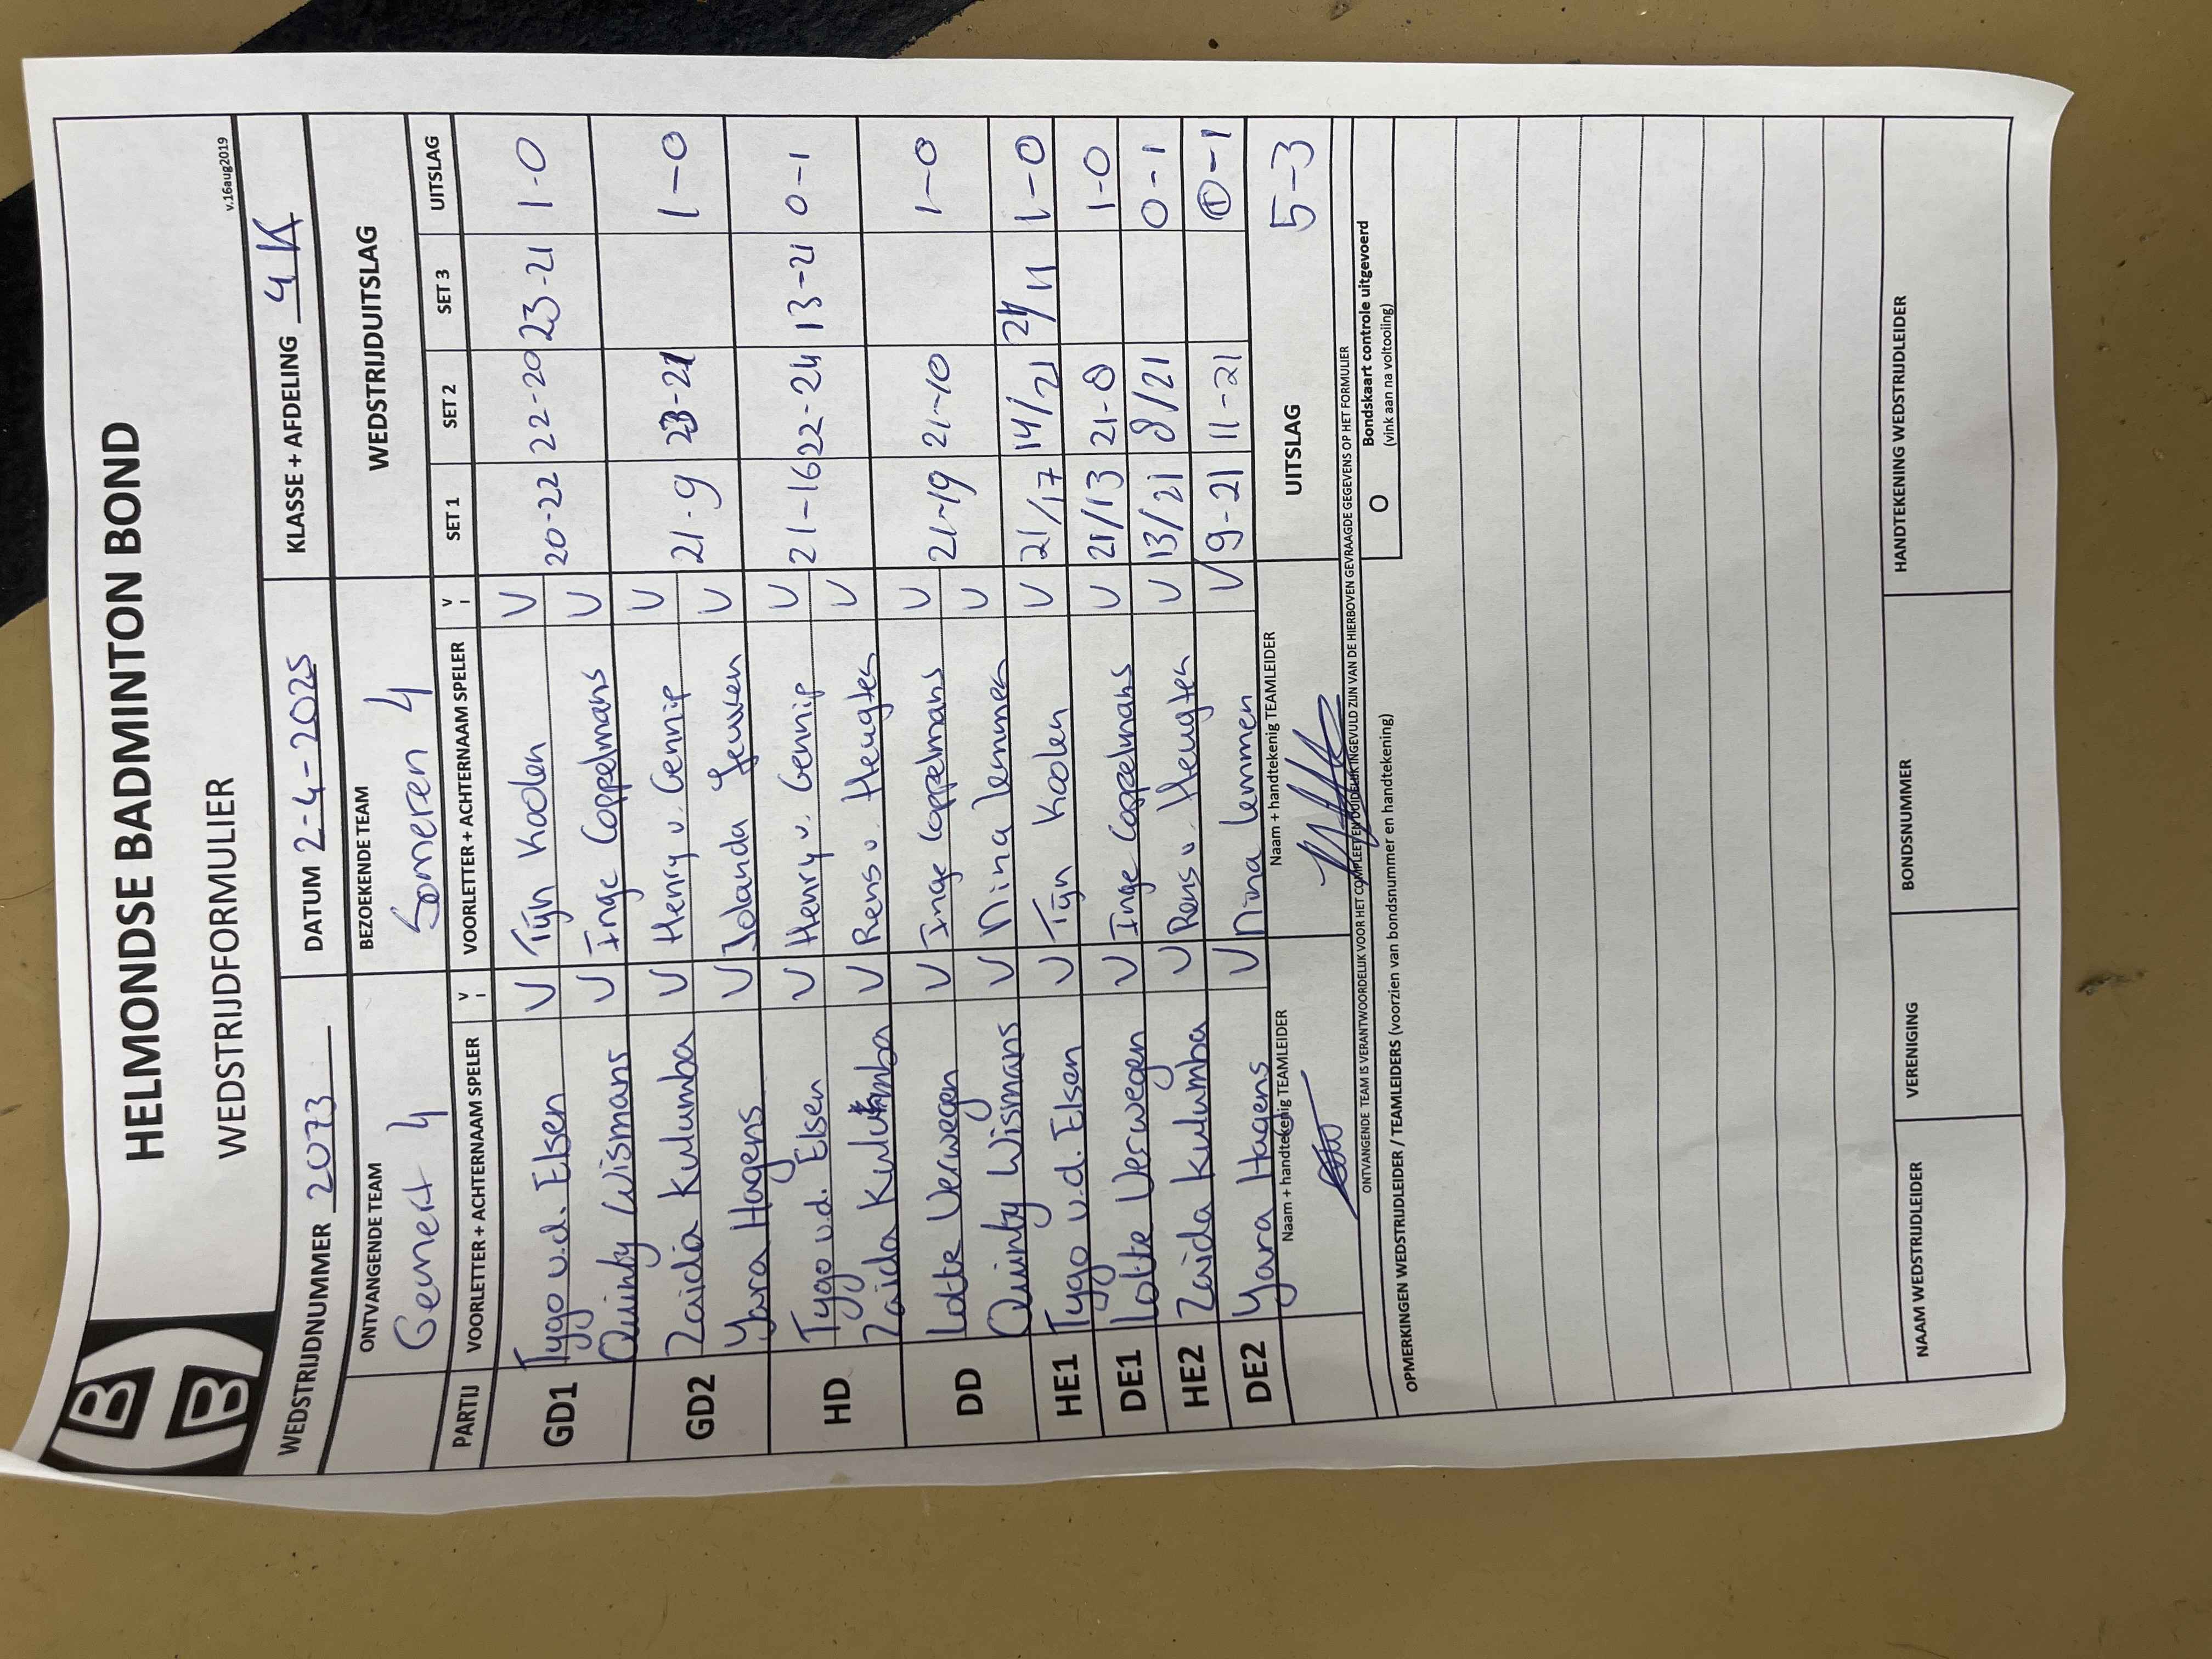 HELMONDSE BADMINTON BOND
WEDSTRIJDFORMULIER
v.16aug2019
WEDSTRIJDNUMMER 2073 DATUM 2-4-2025 KLASSE + AFDELING 4K
ONTVANGENDE TEAM BEZOEKENDE TEAM WEDSTRIJDUITSLAG
Gemert 4 Someren 4
PARTIJ VOORLETTER + ACHTERNAAM SPELER V VOORLETTER + ACHTERNAAM SPELER V SET 1 SET 2 SET 3 UITSLAG
GD1 Tygo v.d. Elsen V Tijn Koolen V 20-22 22-20 23-21 1-0
Quinty Wismans V Inge Coppelmans V
GD2 Zaida Kulumba V Henry v. Gennip V 21-9 23-21 1-0
Yara Hagens V Jolanda Leuwen V
HD Tygo v.d. Elsen V Henry v. Gennip V 21-16 22-24 13-21 0-1
Zaida Kulumba V Rens v. Heugten V
DD Lotte Verwegen V Inge Coppelmans V 21-19 21-10 1-0
Quinty Wismans V Nina Lemmen V
HE1 Tygo v.d. Elsen V Tijn Koolen V 21/17 14/21 21/11 1-0
DE1 Lotte Verwegen V Inge Coppelmans V 21/13 21-8 1-0
HE2 Zaida Kulumba V Rens v. Heugten V 13/21 8/21 0-1
DE2 Yara Hagens V Nina Lemmen V 9-21 11-21 0-1
Naam + handtekenig TEAMLEIDER Naam + handtekenig TEAMLEIDER UITSLAG 5-3
ONTVANGENDE TEAM IS VERANTWOORDELIJK VOOR HET COMPLEET EN DUIDELIJK INGEVULD ZIJN VAN DE HIERBOVEN GEVRAAGDE GEGEVENS OP HET FORMULIER
O Bondskaart controle uitgevoerd
(vink aan na voltooling)
OPMERKINGEN WEDSTRIJDLEIDER / TEAMLEIDERS (voorzien van bondsnummer en handtekening)
NAAM WEDSTRIJDLEIDER VERENIGING BONDSNUMMER HANDTEKENING WEDSTRIJDLEIDER